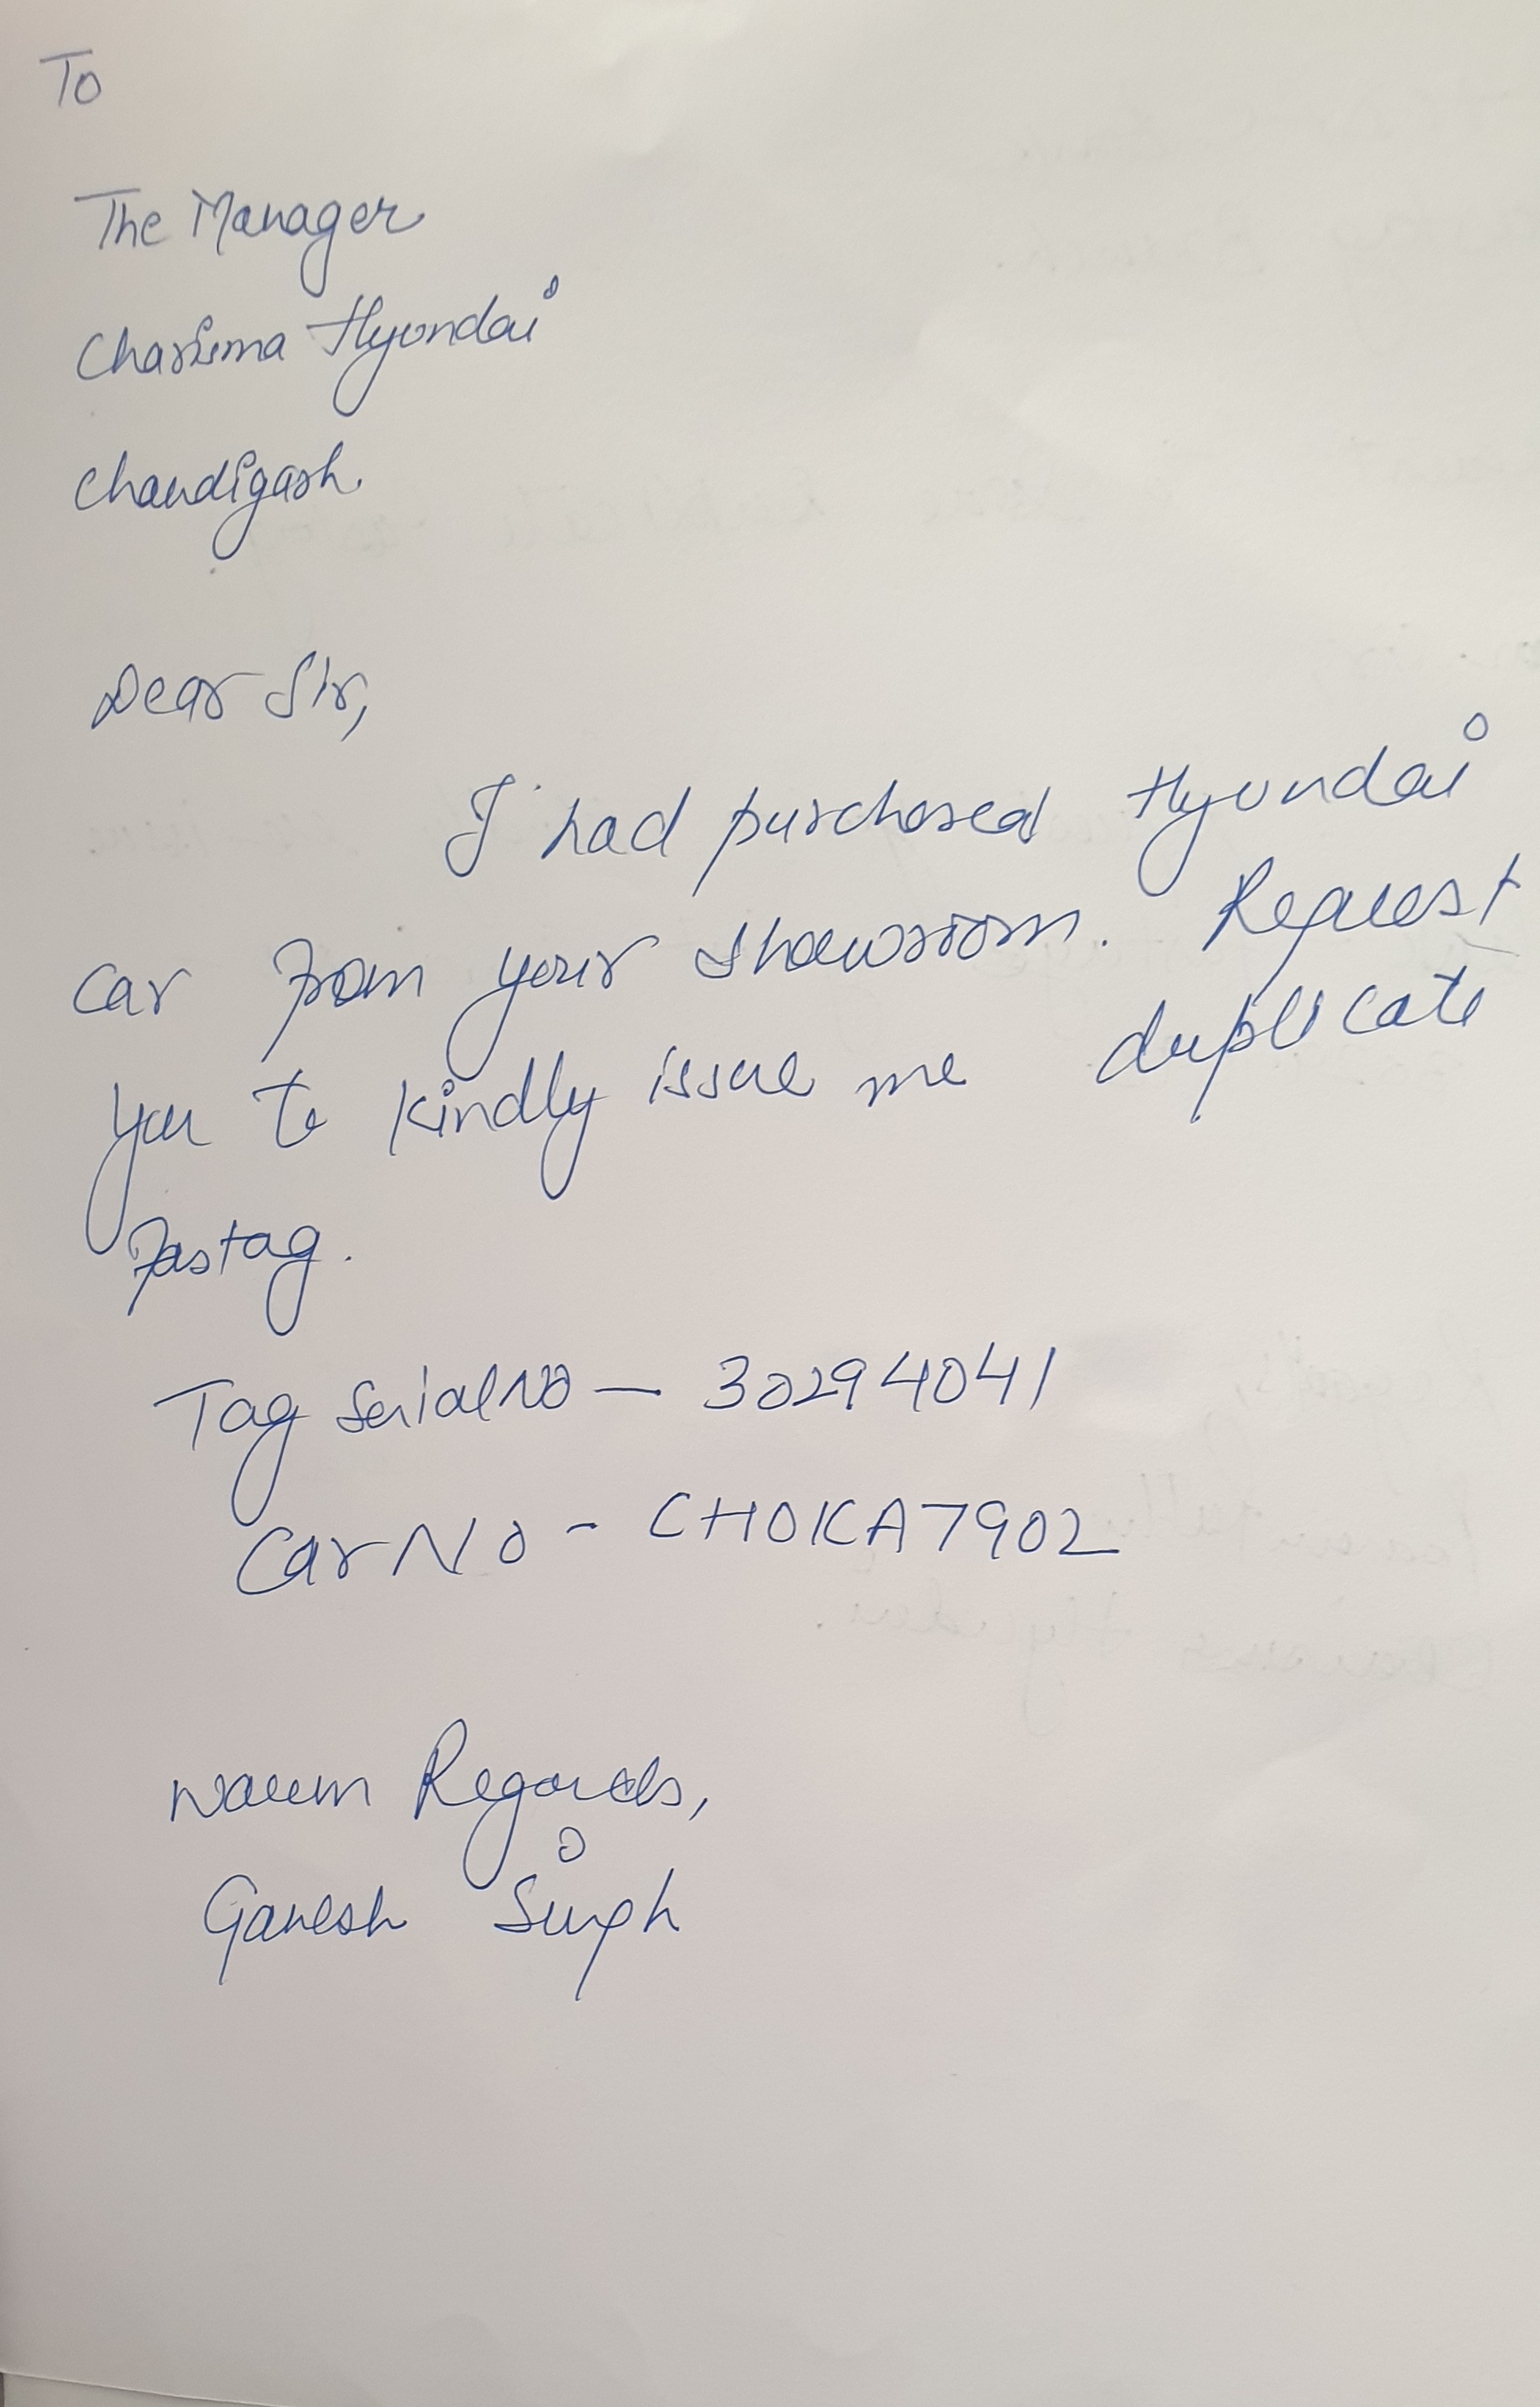 To
The Manager
Charisma Hyundai
Chandigarh.
Dear Sir,
I had purchased Hyundai
car from your showroom. Request
you to kindly issue me duplicate
Fastag.
Tag Serial No — 30294041
Car No - CH0KA7902
Warm Regards,
Ganesh Singh